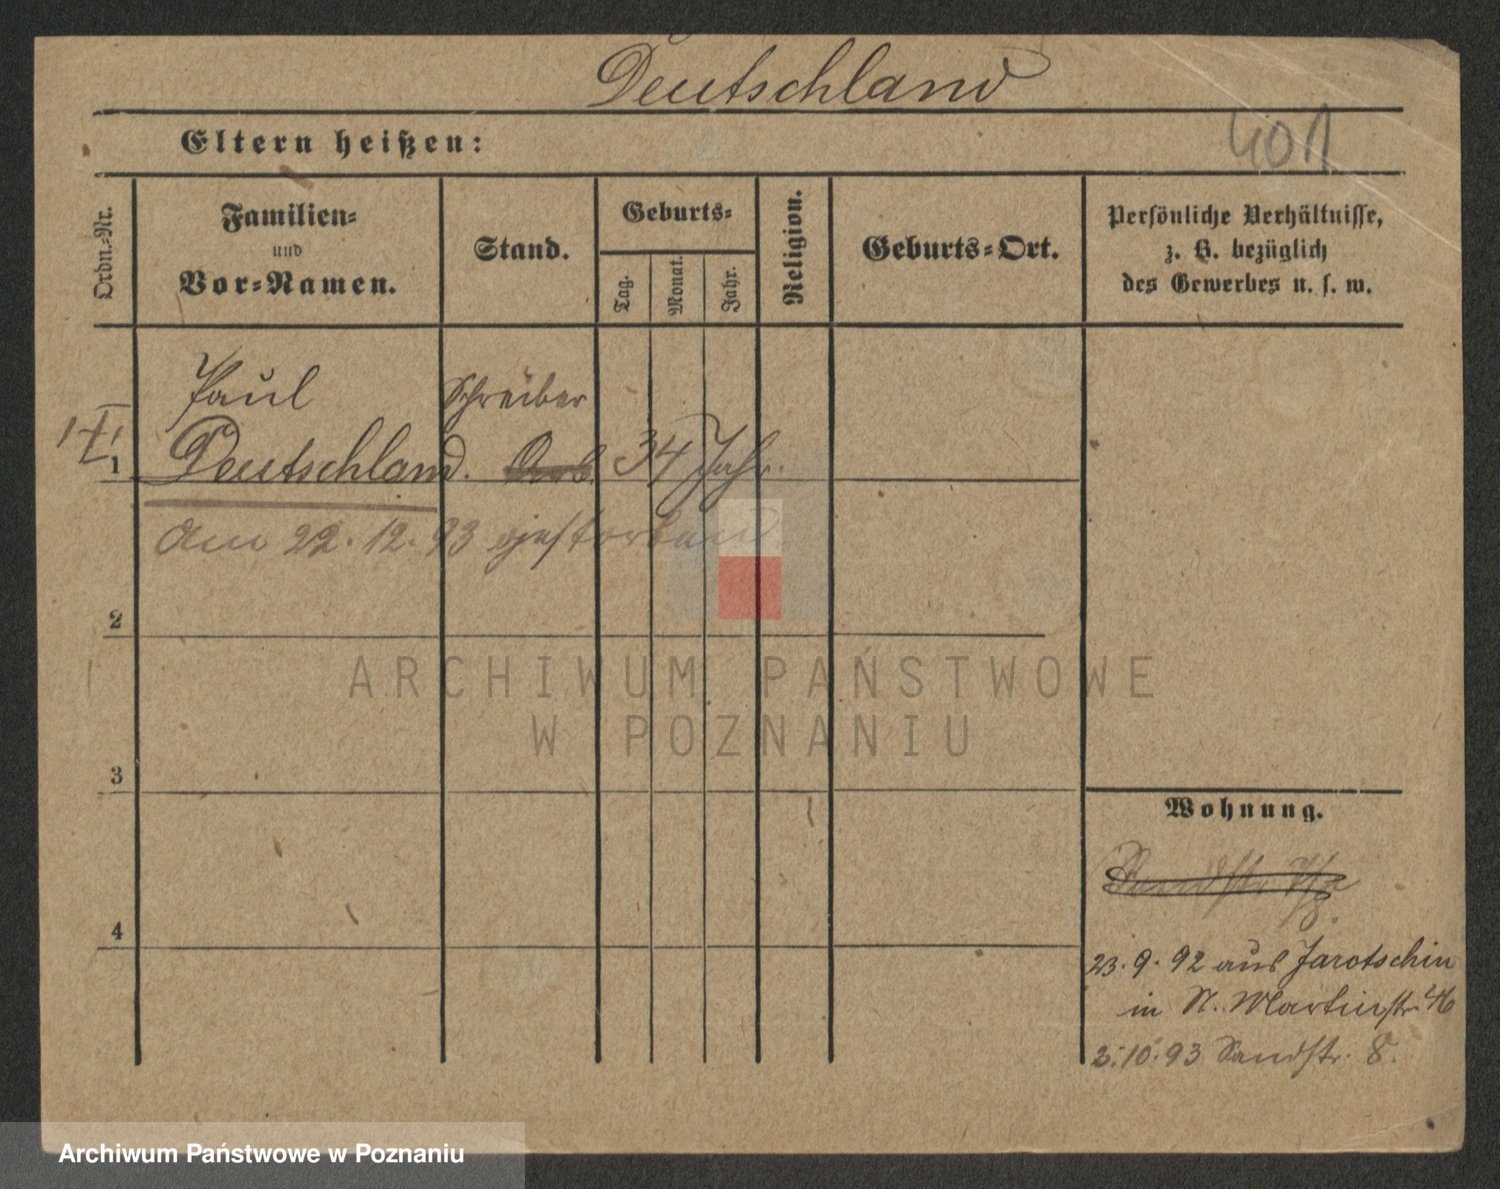 Deutschland
401
Eltern heißen:
Ordn.-Nr.
Familien-
und
Vor-Namen.
Stand.
Geburts-
Tag.
Monat.
Jahr.
Religion.
Geburts-Ort.
Persönliche Verhältnisse,
z. B. bezüglich
des Gewerbes u. s. w.
Paul Schreiber
1 Deutschland. Arb. 34 Jahr.
am 22.12.93 gestorben
2
3
4
Wohnung.
Sandstr.
23.9.92 aus Jarotschin
in St. Martinstr. 46
2.10.93 Sandstr. 8.
ARCHIWUM PAŃSTWOWE
W POZNANIU
Archiwum Państwowe w Poznaniu